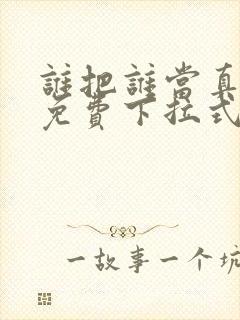 誰把誰當真
免費下拉式
一故事一个坑